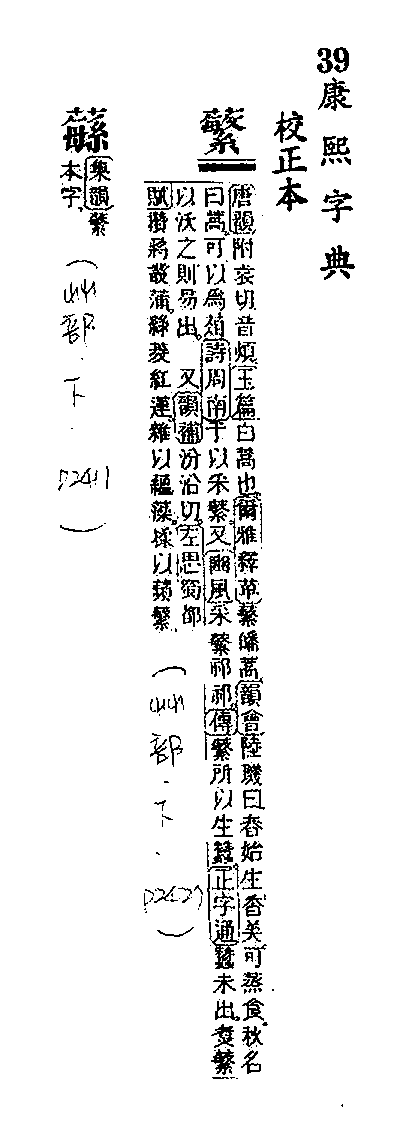 39 康熙字典
校正本
蘩
唐韻附袁切音煩玉篇白蒿也爾雅釋草蘩皤蒿韻會陸璣曰春始生香美可蒸食秋名
曰蒿可以爲葅詩周南于以采蘩又豳風采蘩祁祁傳蘩所以生蠶正字通蠶未出煑蘩
以沃之則易出 又韻補汾沿切左思蜀都
賦攢蔣叢蒲綠菱紅蓮雜以蘊藻糅以蘋蘩
(艸部.下.P2427)
集韻蘩
本字
(艸部.下.P2411)